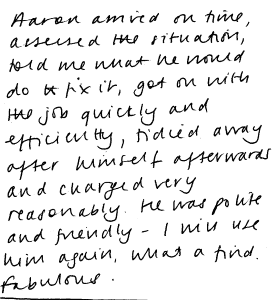 Aaron arrived on time,
assessed the situation,
told me what he would
do to fix it, got on with
the job quickly and
efficiently, tidied away
after himself afterwards
and charged very
reasonably. He was polite
and friendly - I will use
him again, what a find.
Fabulous.